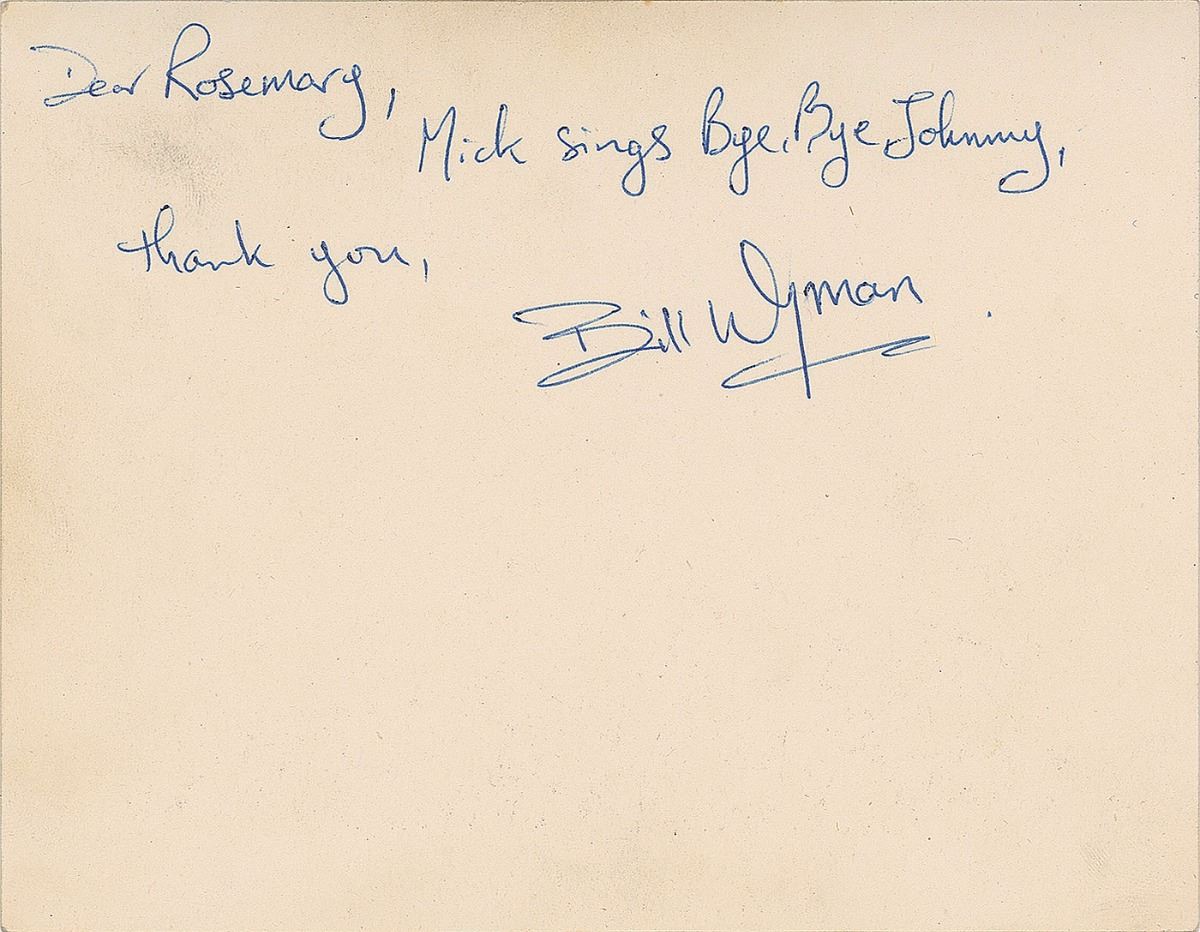 Dear Rosemary,
Mick sings Bye, Bye Johnny,
thank you,
Bill Wyman